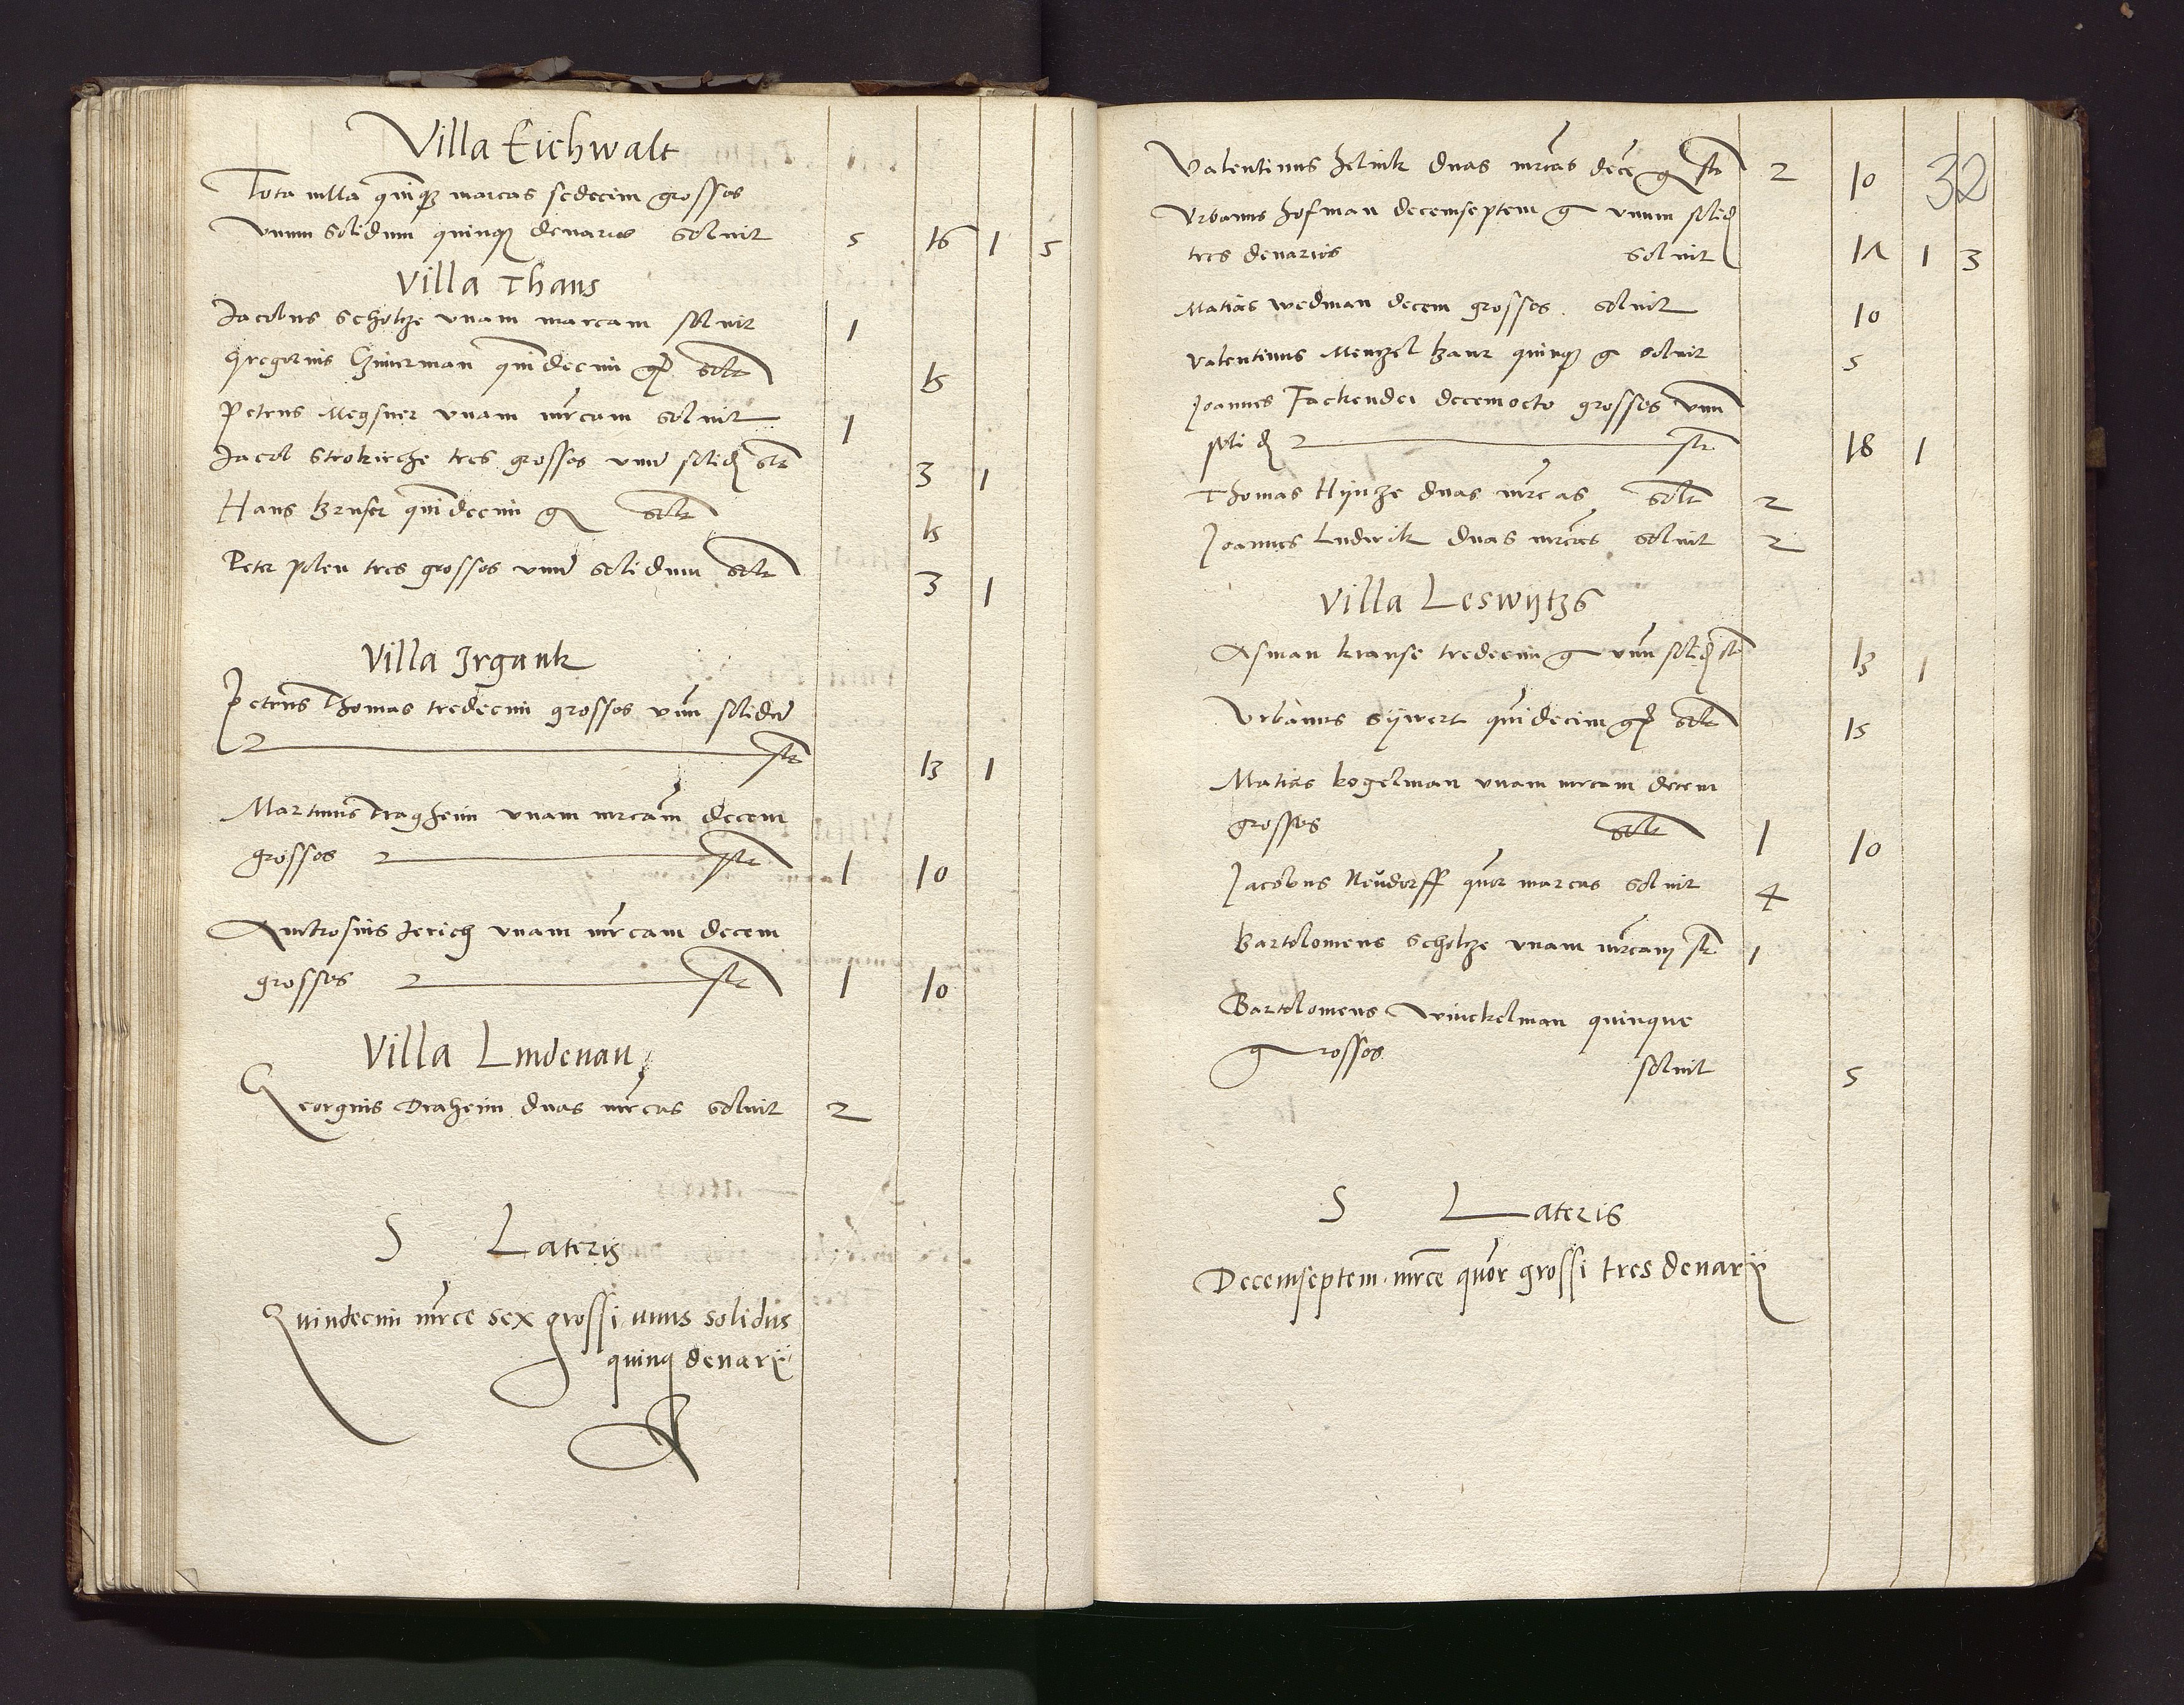 Villa Eichwalt
Tota villa quinq marcas sedecim grossos
Unum solidum quinq denarios solvit 5 16 1 5
Villa Thans
Jacobus Scholtze unam marcam solvit 1
Gregorius Czimerman quindecim gr solt 15
Petrus Megsner unam mrcam solvit 1
Jacob Strokirche tres grossos unu solid solt 3 1
Hans Bruser quindecim g solt 15
Peter polen tres grossos unu solidum solt 3 1
Villa Irgank
Petrus Thomas tredecim grossos unu solidu
solt 13 1
Martinus Tragheim unam mrcam decem
grossos solt 1 10
Ambrosius Jerich unam mrcam decem
grossos solt 1 10
Villa Lindenau
Georgius Draheim duas mrcas solvit 2
S Lateris
Quindecim mrce sex grossi unus solidus
quinq denarii
32
Valentinus duas mrcas dece g solt 2 10
Urbanus Hofman decemseptem g unum solid
tres denarios solvit 17 1 3
Matias Wedman decem grossos solvit 10
Valentinus Mentzel quinq g solvit 5
Joannes Fackendei decemocto grossos unu
solid solt 18 1
Thomas Hyntze duas mrcas solt 2
Joannes Ludwik duas mrcas solvit 2
Villa Leswytzs
Asman Krause tredecim g unu solid solt 13 1
Urbanus Sywert quindecim gr solt 15
Matias Kogelman unam mrcam decem
grossos solt 1 10
Jacobus Neudorff quor marcas solvit 4
Bartolomeus Scholtze unam mrcam solt 1
Bartolomeus Winckelman quinque
grossos solvit 5
S Lateris
Decemseptem mrce quor grossi tres denarii